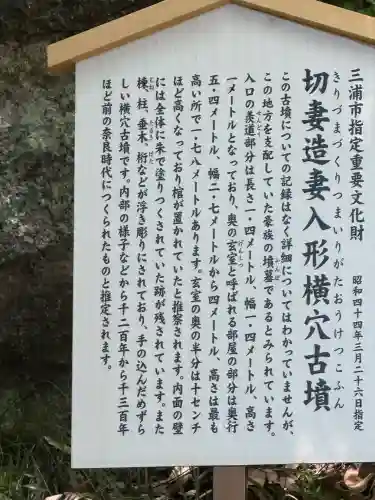 三浦市指定重要文化財
昭和四十四年三月二十六日指定
きりづまづくりつまいりがたおうけつこふん
切妻造妻入形横穴古墳
この古墳についての記録はなく詳細についてはわかっていませんが、
この地方を支配していた豪族の墳墓であるとみられています。
ふんぼ
入口の羨道部分は長さ一・四メートル、幅一・四メートル、高さ
せんどう
一メートルとなっており、奥の玄室と呼ばれる部屋の部分は奥行
げんしつ
五・四メートル、幅二・七メートルから四メートル、高さは最も
高い所で一・七八メートルあります。玄室の奥の半分は十センチ
ほど高くなっており棺が置かれていたと推察されます。内面の壁
には全体に朱で塗りつくされていた跡が残されています。また
棟、柱、垂木、桁などが浮き彫りにされており、手の込んだめずら
むね たるき けた
しい横穴古墳です。内部の様子などから千二百年から千三百年
ほど前の奈良時代につくられたものと推定されます。